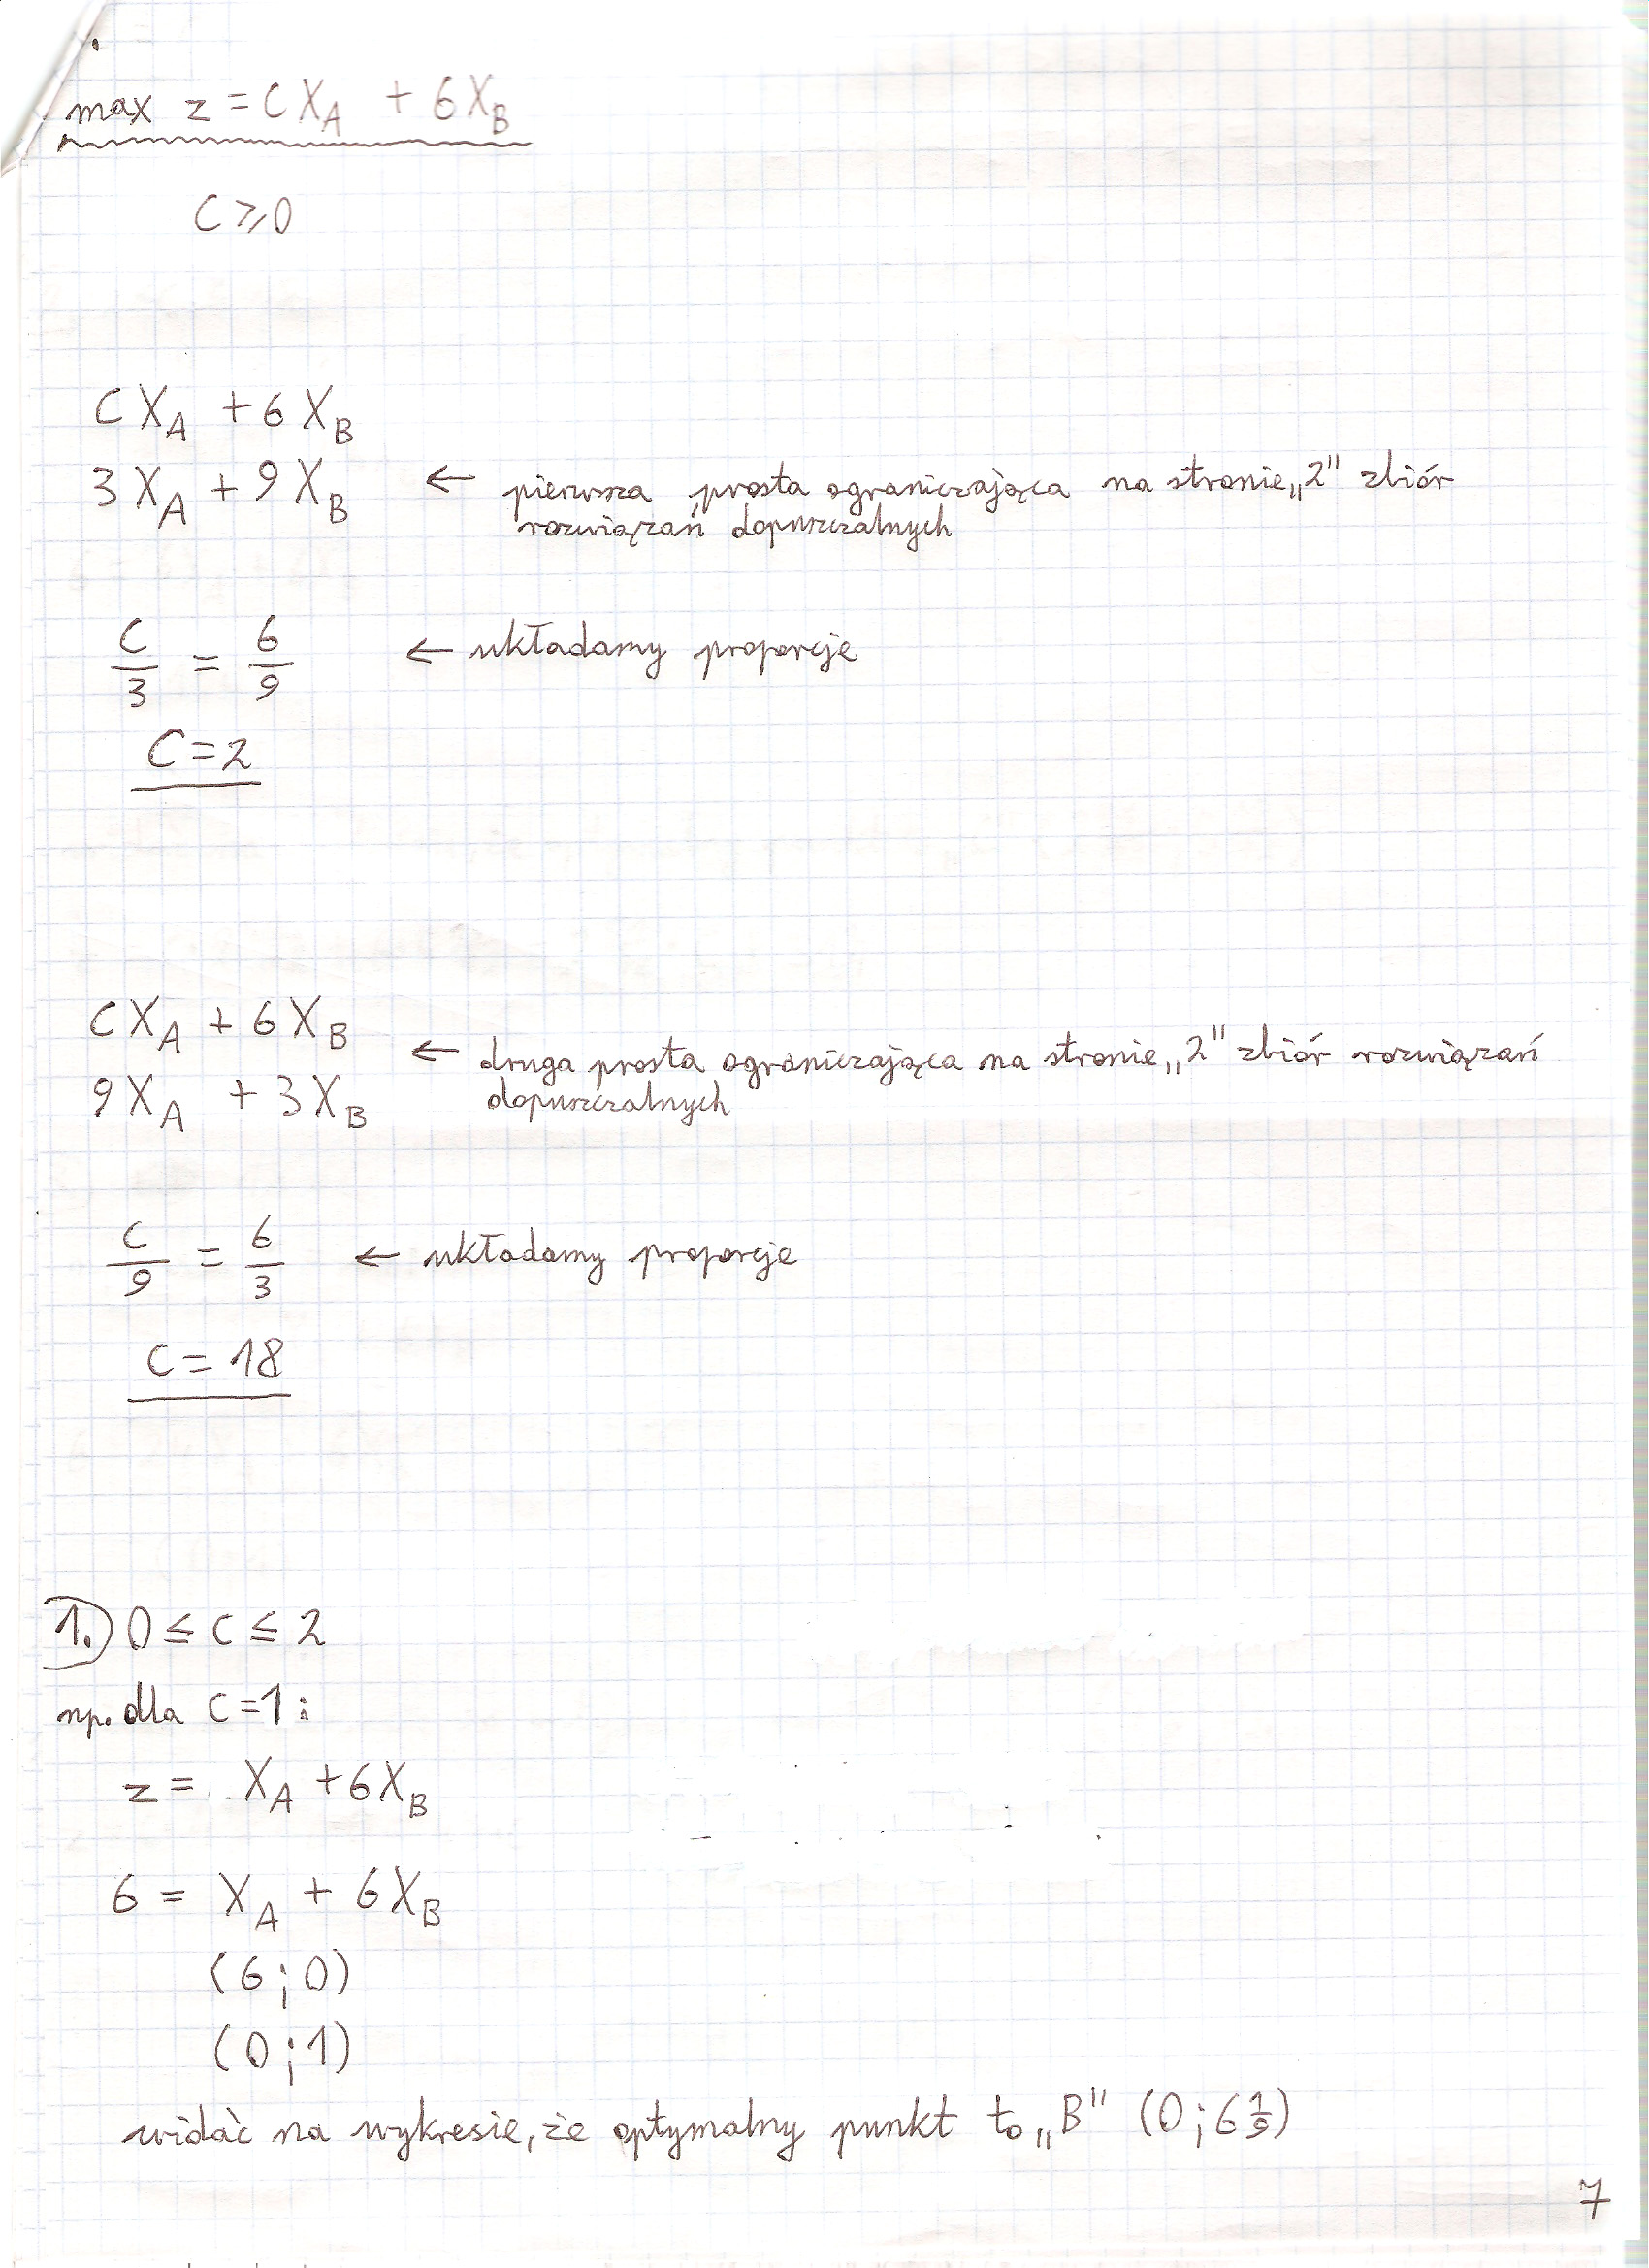 max z = C X_A + 6X_B
C ⩾ 0
C X_A + 6 X_B
3 X_A + 9 X_B ← pierwsza prosta ograniczająca na stronie „2" zbiór
rozwiązań dopuszczalnych
C/3 = 6/9 ← układamy proporcje
C = 2
C X_A + 6 X_B
← druga prosta ograniczająca na stronie „2" zbiór rozwiązań
9X_A + 3X_B dopuszczalnych
C/9 = 6/3 ← układamy proporcje
C = 18
1. 0 ≤ C ≤ 2
np. dla C = 1:
z = X_A + 6X_B
6 = X_A + 6X_B
(6 ; 0)
(0 ; 1)
widać na wykresie, że optymalny punkt to „B" (0 ; 6 1/9)
7